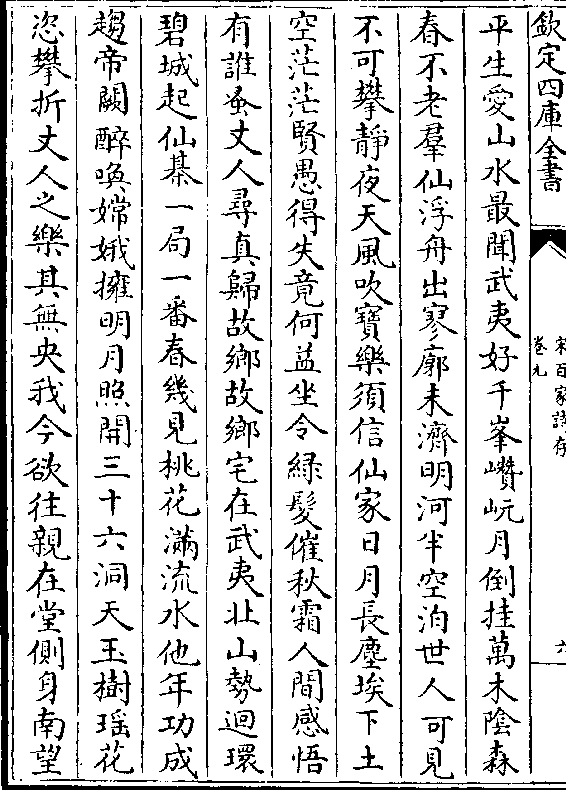 欽定四庫全書
宋百家詩存
卷九
六
平生愛山水最聞武夷好千峯巑岏月倒挂萬木陰森
春不老羣仙浮舟出寥廓未濟明河半空泊世人可見
不可攀靜夜天風吹寶樂須信仙家日月長塵埃下土
空茫茫賢愚得失竟何益坐令緑髮催秋霜人間感悟
有誰蚤丈人尋真歸故鄉故鄉宅在武夷北山勢迴環
碧城起仙棊一局一番春幾見桃花滿流水他年功成
趨帝闕醉喚嫦娥擁明月照開三十六洞天玉樹瑶花
恣攀折丈人之樂其無央我今欲往親在堂側身南望